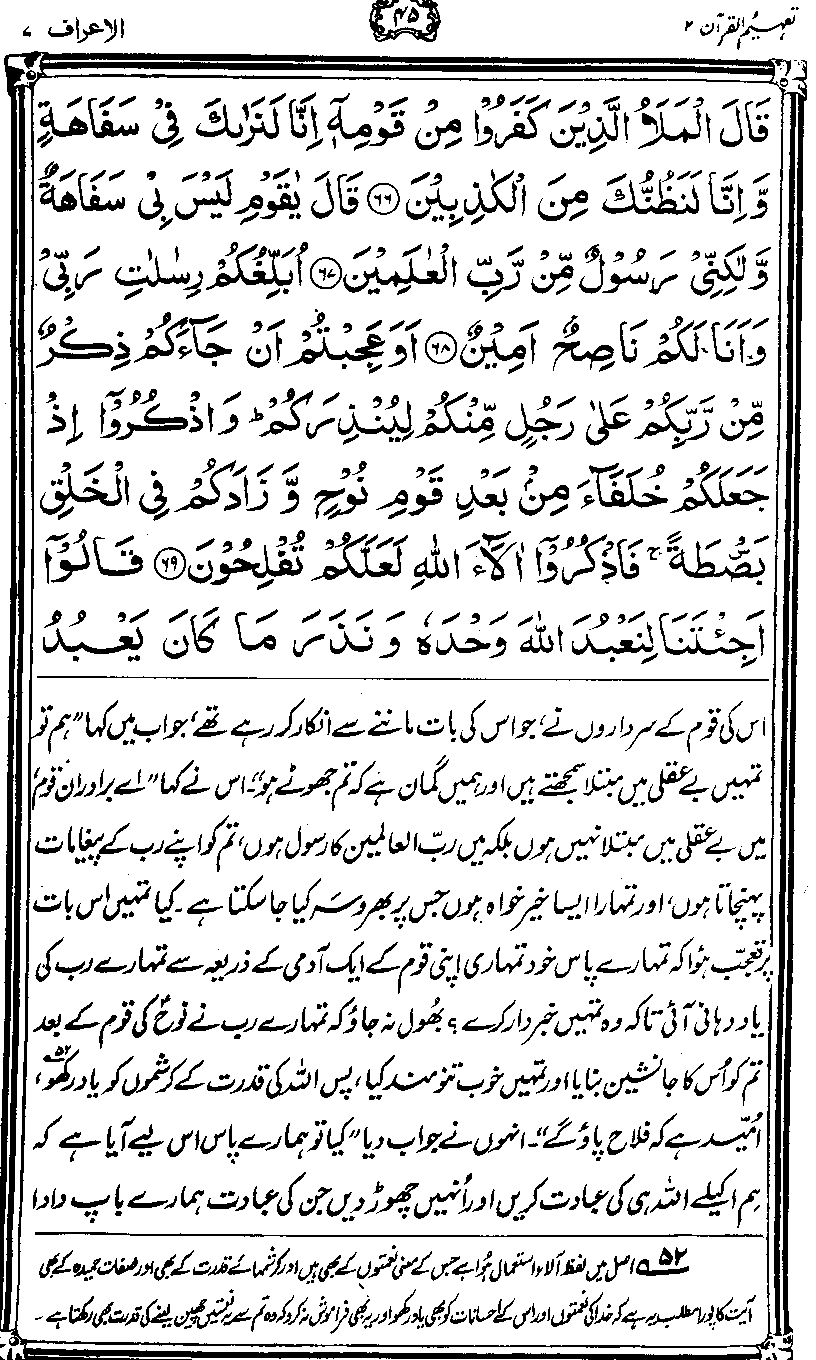 تفہیم القرآن ۲
۴۵
الاعراف ۷
قَالَ الْمَلَاُ الَّذِیْنَ كَفَرُوْا مِنْ قَوْمِهٖۤ اِنَّا لَنَرٰىكَ فِیْ سَفَاهَةٍ
وَّ اِنَّا لَنَظُنُّكَ مِنَ الْكٰذِبِیْنَ ﴿۶۶﴾ قَالَ یٰقَوْمِ لَیْسَ بِیْ سَفَاهَةٌ
وَّ لٰكِنِّیْ رَسُوْلٌ مِّنْ رَّبِّ الْعٰلَمِیْنَ ﴿۶۷﴾ اُبَلِّغُكُمْ رِسٰلٰتِ رَبِّیْ
وَ اَنَا لَكُمْ نَاصِحٌ اَمِیْنٌ ﴿۶۸﴾ اَوَ عَجِبْتُمْ اَنْ جَآءَكُمْ ذِكْرٌ
مِّنْ رَّبِّكُمْ عَلٰی رَجُلٍ مِّنْكُمْ لِیُنْذِرَكُمْ ؕ وَ اذْكُرُوْۤا اِذْ
جَعَلَكُمْ خُلَفَآءَ مِنْۢ بَعْدِ قَوْمِ نُوْحٍ وَّ زَادَكُمْ فِی الْخَلْقِ
بَصْۜطَةً ۚ فَاذْكُرُوْۤا اٰلَآءَ اللّٰهِ لَعَلَّكُمْ تُفْلِحُوْنَ ﴿۶۹﴾ قَالُوْۤا
اَجِئْتَنَا لِنَعْبُدَ اللّٰهَ وَحْدَهٗ وَ نَذَرَ مَا كَانَ یَعْبُدُ
اس کی قوم کے سرداروں نے، جو اس کی بات ماننے سے انکار کر رہے تھے، جواب میں کہا ”ہم تو
تمہیں بے عقلی میں مبتلا سمجھتے ہیں اور ہمیں گمان ہے کہ تم جھوٹے ہو“۔ اس نے کہا ”اے برادرانِ قوم،
میں بے عقلی میں مبتلا نہیں ہوں بلکہ میں ربّ العالمین کا رسول ہوں، تم کو اپنے رب کے پیغامات
پہنچاتا ہوں، اور تمہارا ایسا خیر خواہ ہوں جس پر بھروسہ کیا جا سکتا ہے۔ کیا تمہیں اس بات
پر تعجب ہوا کہ تمہارے پاس خود تمہاری اپنی قوم کے ایک آدمی کے ذریعہ سے تمہارے رب کی
یاد دہانی آئی تاکہ وہ تمہیں خبردار کرے؟ بھُول نہ جاؤ کہ تمہارے رب نے نوحؑ کی قوم کے بعد
تم کو اُس کا جانشین بنایا اور تمہیں خوب تنومند کیا، پس اللہ کی قدرت کے کرشموں کو یاد رکھو۵۲،
اُمّید ہے کہ فلاح پاؤ گے“۔ انہوں نے جواب دیا ”کیا تو ہمارے پاس اس لیے آیا ہے کہ
ہم اکیلے اللہ ہی کی عبادت کریں اور اُنہیں چھوڑ دیں جن کی عبادت ہمارے باپ دادا
۵۲ اصل میں لفظ آلاء استعمال ہوا ہے جس کے معنی نعمتوں کے بھی ہیں اور کرشمہائے قدرت کے بھی اور صفات حمیدہ کے بھی
آیت کا پورا مطلب یہ ہے کہ خدا کی نعمتوں اور اس کے احسانات کو بھی یاد رکھو اور یہ بھی فراموش نہ کرو کہ وہ تم سے یہ نعمتیں چھین لینے کی قدرت بھی رکھتا ہے۔